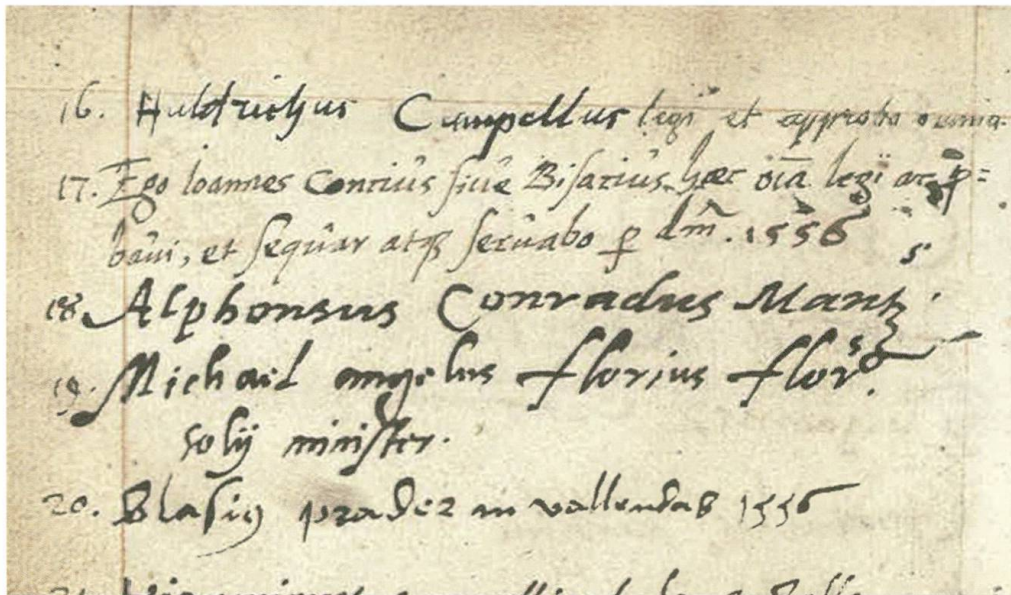 16. Huldrichus Campellus legi et approbo omnia.
17. Ego Ioannes Contius siue Bisatius hæc oīa legi ac p̄=
baui, et sequar atq; seruabo p dm̄. 1556
18. Alphonsus Conradus Mant.
19. Michael angelus florius flors.
solij minister.
20. Blasig prader in vallendas 1556